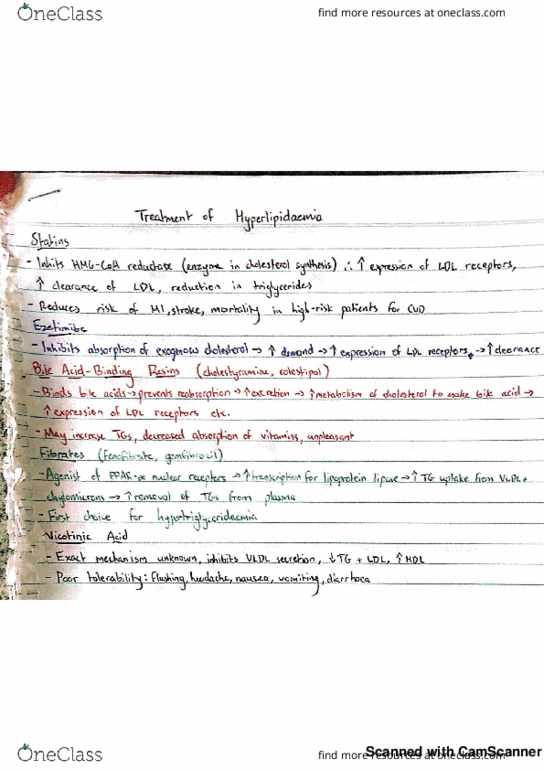 OneClass
find more resources at oneclass.com
Treatment of Hyperlipidaemia
Statins
- Inhibits HMG-CoA reductase (enzyme in cholesterol synthesis) ∴ ↑ expression of LDL receptors,
↑ clearance of LDL, reduction in triglycerides
- Reduces risk of MI, stroke, mortality in high-risk patients for CVD
Ezetimibe
- Inhibits absorption of exogenous cholesterol → ↑ demand → ↑ expression of LDL receptors → ↑ clearance
Bile Acid-Binding Resins (cholestyramine, colestipol)
- Binds bile acids → prevents reabsorption → ↑ excretion → ↑ metabolism of cholesterol to make bile acid →
↑ expression of LDL receptors etc.
- May increase TGs, decreased absorption of vitamins, unpleasant
Fibrates (fenofibrate, gemfibrozil)
- Agonist of PPAR-α nuclear receptors → ↑ transcription for lipoprotein lipase → ↑ TG uptake from VLDL +
chylomicrons → ↑ removal of TGs from plasma
- First choice for hypertriglyceridaemia
Nicotinic Acid
- Exact mechanism unknown, inhibits VLDL secretion, ↓ TG + LDL, ↑ HDL
- Poor tolerability: Flushing, headache, nausea, vomiting, diarrhoea
OneClass
find more resources at oneclass.com
Scanned with CamScanner